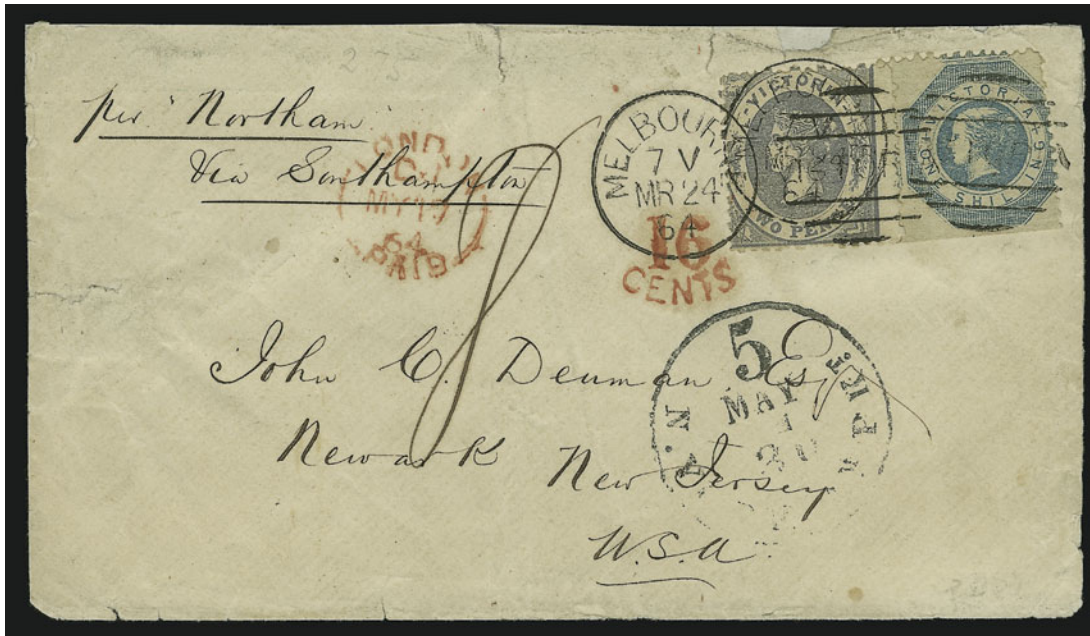 per Northam
Via Southampton
LONDON
MY
64
PAID
MELBOUR
7 V
MR 24
64
VICTORIA
TWO PENCE
64
VICTORIA
ONE SHILLING
16
CENTS
5
N.
PKT.
MAY
John C. Denman Esq
Newark New Jersey
U.S.A